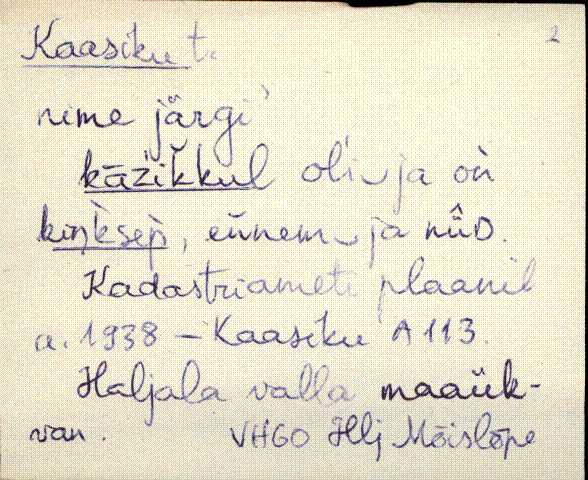 Kaasiku t. 2
nime järgi
kāzikkul oli‿ja oǹ
kiŋ̀k̀sep̀, ennem‿ja nüüD.
Kadastriameti plaanil
a. 1938 – Kaasiku A 113.
Haljala valla maaük-
van. VHGO Hlj Mõislõpe